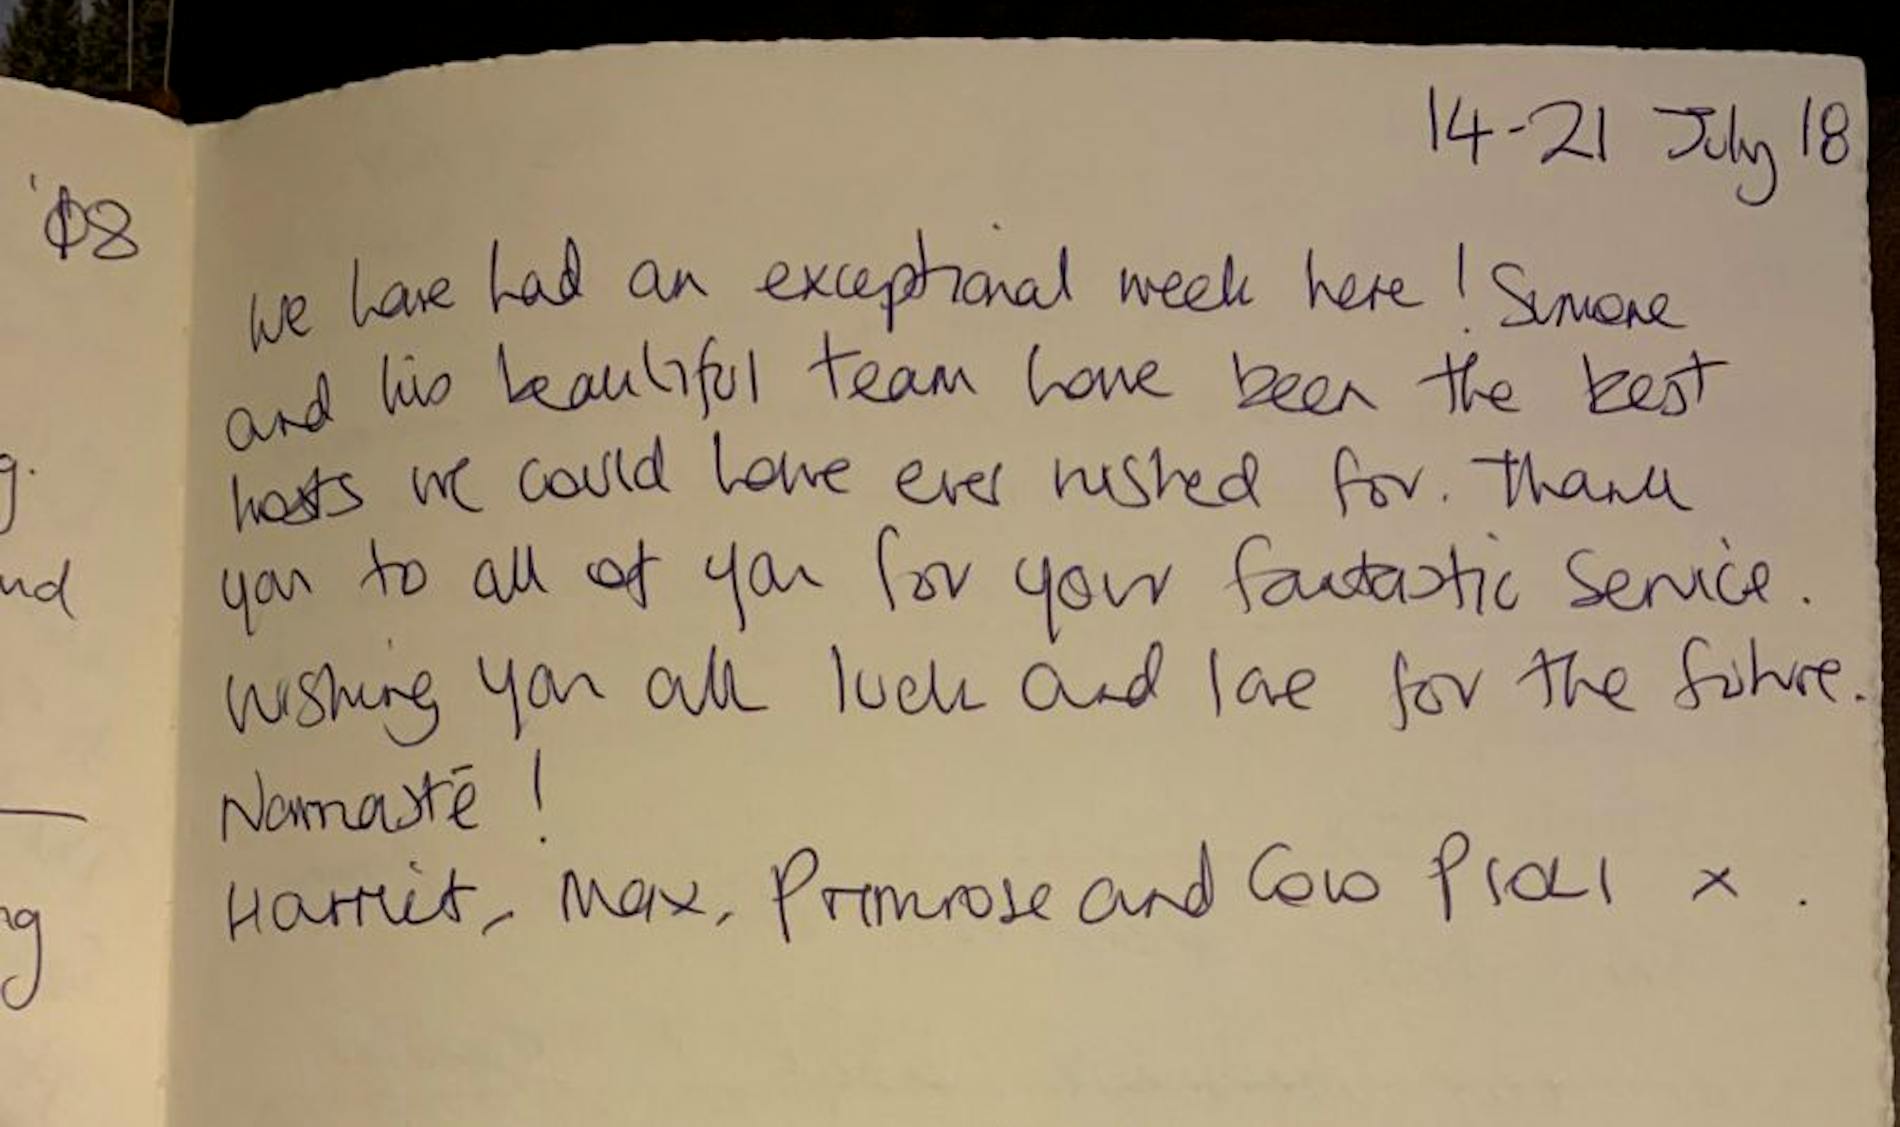 '08
14-21 July 18
We have had an exceptional week here! Simone
and his beautiful team have been the best
g.
hosts we could have ever wished for. Thank
you to all of you for your fantastic service.
nd
wishing you all luck and love for the future.
Namastē!
Harriet, Max, Primrose and Coco x.
ng